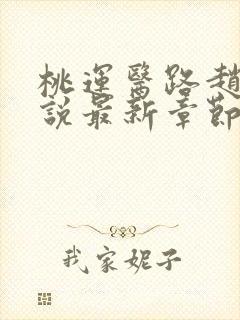 桃運醫路趙
說最新章節
我家妮子